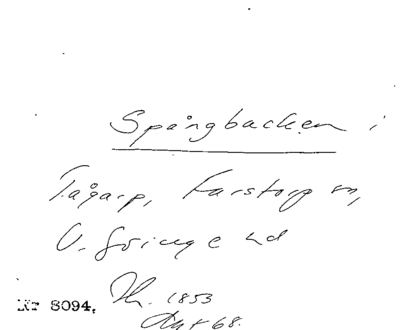 Spångbacken i
Tågarp, Farstorp sn,
V. Göinge hd
Nr 8094. Th. 1853
Akt 68.